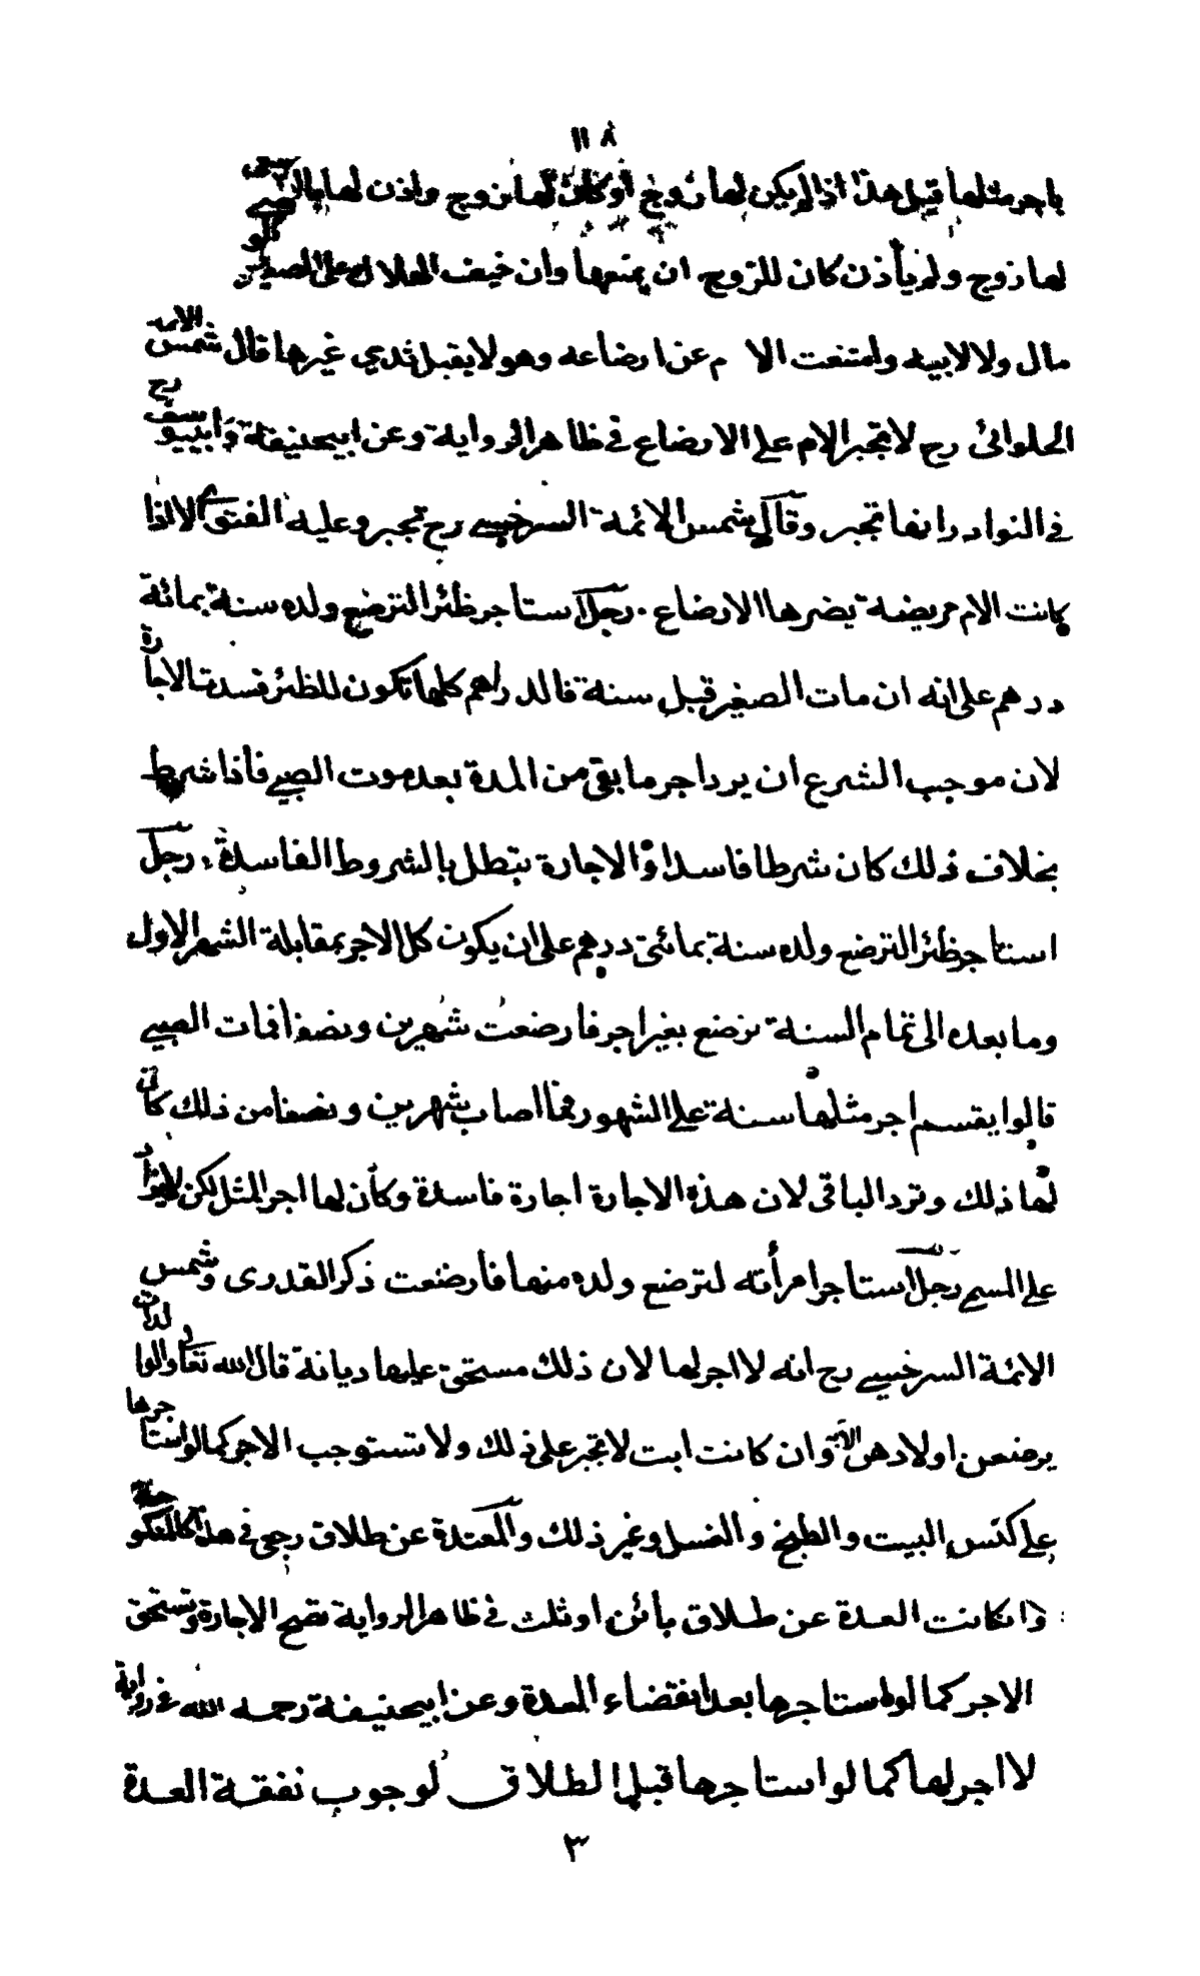 ١١٨
باجر مثلها قيل هذا اذا لم يكن لها زوج او كان لها زوج واذن لها
لها زوج ولم يأذن كان للزوج ان يمنعها وان خيف الهلاك على الصبي
مال ولا لابيه وامتنعت الام عن ارضاعه وهو لا يقبل ثدي غيرها قال شمس الائمة
الحلوائي رح لا تجبر الام على الارضاع في ظاهر الرواية وعن ابيحنيفة وابييوسف رح
في النوادر انها تجبر وقال شمس الائمة السرخسي رح تجبر وعليه الفتوى الا اذا
كانت الام مريضة يضرها الارضاع رجل استاجر ظئرا لترضع ولده سنة بمائة
درهم على انه ان مات الصغير قبل سنة فالدراهم كلها تكون للظئر فسدت الاجارة
لان موجب الشرع ان يرد اجر ما بقي من المدة بعد موت الصبي فاذا شرط
بخلاف ذلك كان شرطا فاسدا والاجارة تبطل بالشروط الفاسدة رجل
استاجر ظئرا لترضع ولده سنة بمائتى درهم على ان يكون كل الاجر بمقابلة الشهر الاول
وما بعده الى تمام السنة ترضع بغير اجر فارضعت شهرين ونصفا فمات الصبي
قالوا يقسم اجر مثلها سنة على الشهور فما اصاب شهرين ونصفا من ذلك كان
لها ذلك وترد الباقي لان هذه الاجارة اجارة فاسدة وكان لها اجر المثل لكن لا يزاد
على المسمى رجل استاجر امرأته لترضع ولده منها فارضعت ذكر القدرى وشمس
الائمة السرخسي رح انه لا اجر لها لان ذلك مستحق عليها ديانة قال الله تعالى والوالدات
يرضعن اولادهن الآية وان كانت ابت لا تجبر على ذلك ولا تستوجب الاجر كما لو استاجرها
على كنس البيت والطبخ والغسل وغير ذلك والمعتدة عن طلاق رجعي في هذا كالمنكوحة
وان كانت العدة عن طلاق بائن او ثلث في ظاهر الرواية تصح الاجارة وتستحق
الاجر كما لو استاجرها بعد انقضاء العدة وعن ابيحنيفة رحمه الله في رواية
لا اجر لها كما لو استاجرها قبل الطلاق لوجوب نفقة العدة
٣